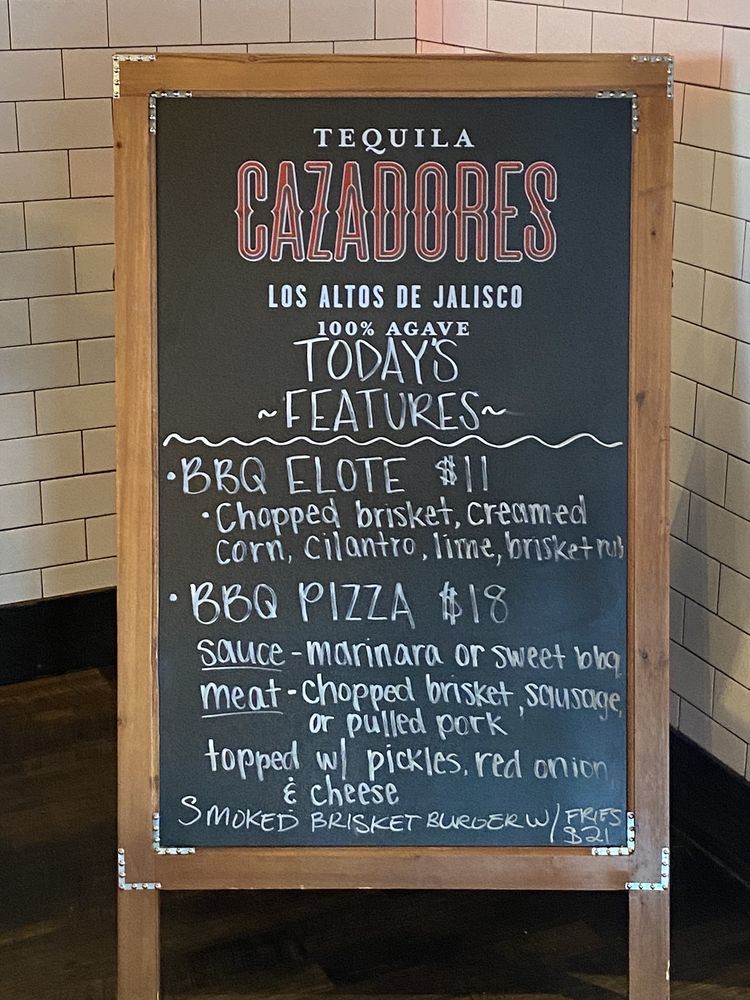 TEQUILA
CAZADORES
LOS ALTOS DE JALISCO
100% AGAVE
TODAY'S
~FEATURES~
•BBQ ELOTE $11
•Chopped brisket, creamed
corn, cilantro, lime, brisket rub
•BBQ PIZZA $18
sauce - marinara or sweet bbq
meat - chopped brisket, sausage,
or pulled pork
topped w/ pickles, red onion
& cheese
SMOKED BRISKET BURGER W/ FRIES
$21